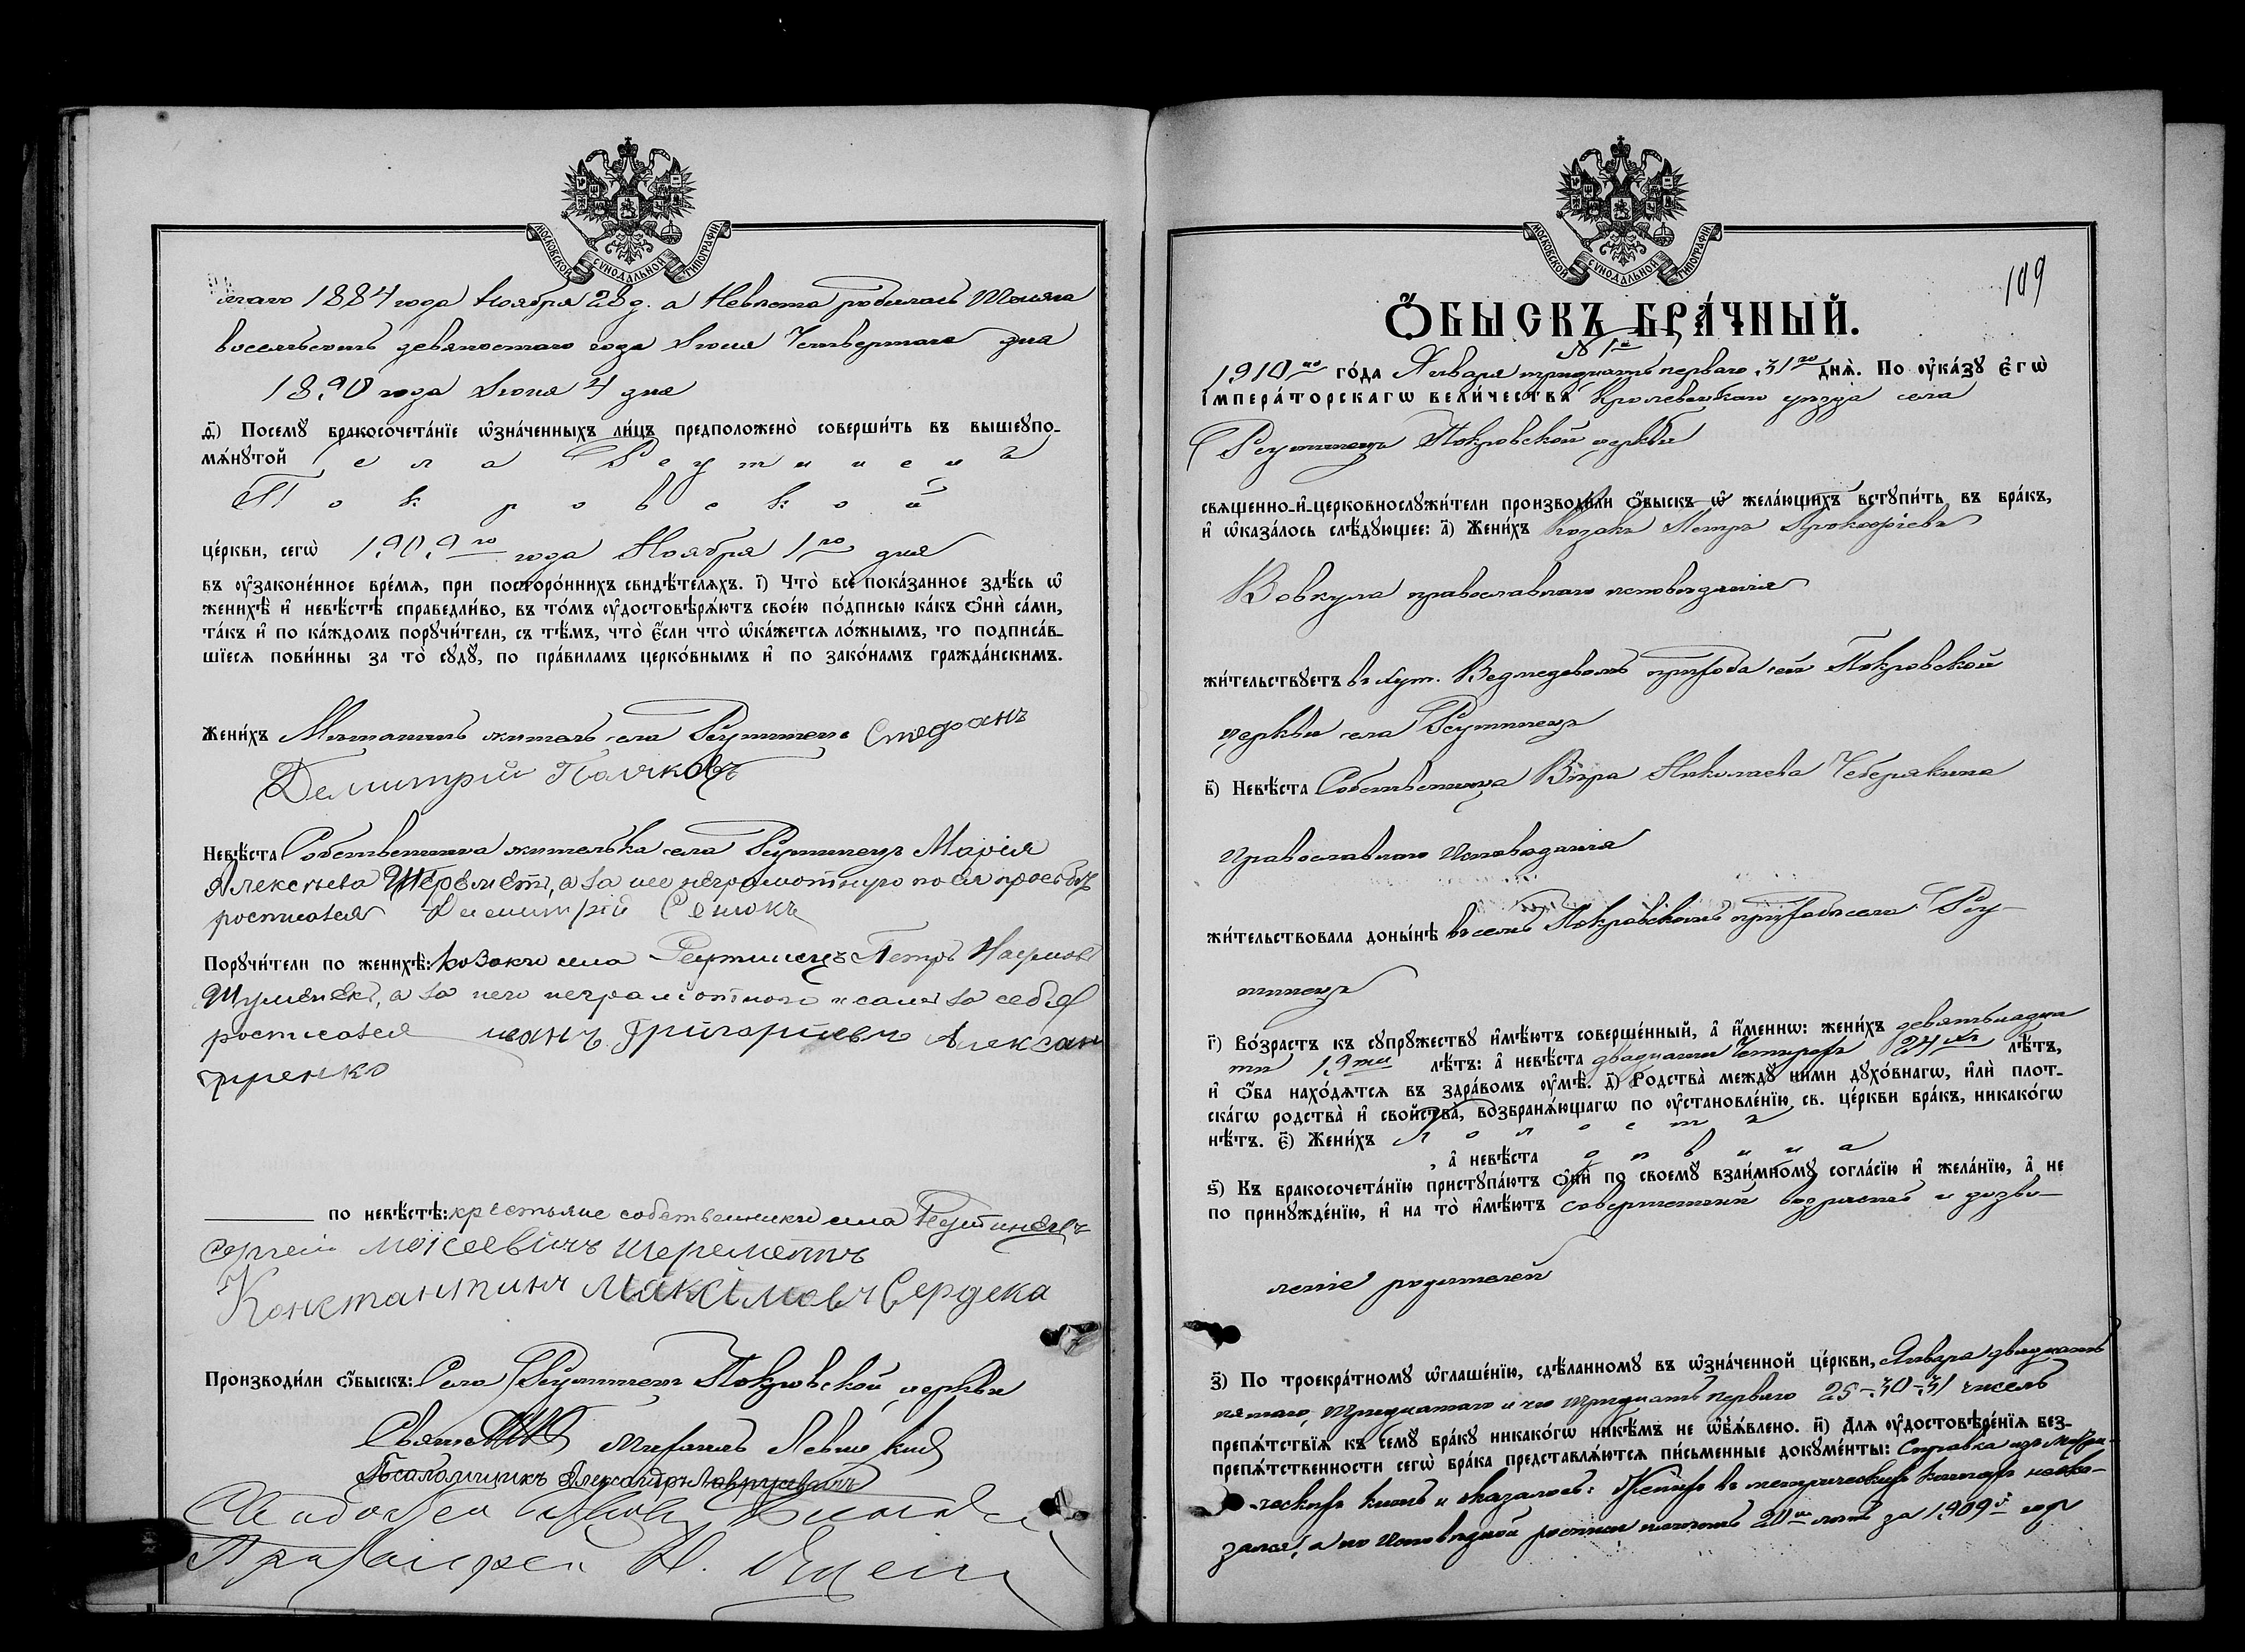 МОСКОВСКОЙ СѴНОДАЛЬНОЙ ТИПОГРАФІИ
1884 года Ноября 28 д. а Невѣста родилась Тысяча
восемьсотъ девяностаго года Іюня Четвертаго дня
1890 года Іюня 4 дня
д҃) Посемꙋ бракосочета́нїе ѡ҆зна́ченныхъ ли́цъ предположено̀ соверши́ть въ вышеꙋпо-
мѧ́нꙋтой села Реутинецъ
Покровской
це́ркви, сегѡ̀ 1909го года Ноября 1го дня
въ ᲂу҆законе́нное вре́мѧ, при посторо́ннихъ свидѣ́телѧхъ. і҃) Что̀ всѐ пока́занное здѣ́сь ѡ҆
женихѣ̀ и҆ невѣ́стѣ справедли́во, въ то́мъ ᲂу҆достовѣрѧ́ютъ свое́ю по́дписью ка́къ ѻ҆нѝ са́ми,
та́къ и҆ по ка́ждомъ порꙋчи́тели, съ тѣ́мъ, что̀ є҆́сли что̀ ѡ҆ка́жетсѧ ло́жнымъ, то подписа́в-
шїесѧ пови́нны за то̀ сꙋдꙋ̀, по пра́виламъ церко́внымъ и҆ по зако́намъ гражда́нскимъ.
Жени́хъ Мѣщанинъ житель села Реутинецъ Стефанъ
Демитрій Поляковъ
Невѣ́ста Собственница жителька села Реутинецъ Марія
Алексѣева Шереметъ, а за нее неграмотную по ея просьбѣ
росписался Димитрій Сенюкъ
Порꙋчи́тели по женихѣ̀: Козаки села Реутинецъ Петръ Наумовъ
Шуменокъ, а за него неграмотнаго и самъ за себя
росписался иванъ Григориевъ Алексан
дренко
по невѣ́стѣ: крестьяне собственники села Реутинецъ
Сергѣй Моісеевичъ Шереметъ
Константинъ Максімовъ Сердека
Производи́ли ѻ҆́быскъ: Села Реутинецъ Покровской церкви
Михаилъ Левицкій
Псаломщикъ Александръ
МОСКОВСКОЙ СѴНОДАЛЬНОЙ ТИПОГРАФІИ
109
Ѻ҆́БЫСКЪ БРА́ЧНЫЙ.
№ 1й
1910го го́да Января тридцать перваго 31го днѧ̀. По ᲂу҆ка́зꙋ є҆гѡ̀
і҆мпера́торскагѡ вели́чества Кролевецкаго уѣзда села
Реутинецъ Покровской церкви
свѧщенно-и҆-церковнослꙋжи́тели производи́ли ѻ҆́быскъ ѡ҆ жела́ющихъ встꙋпи́ть въ бра́къ,
и҆ ѡ҆каза́лось слѣ́дꙋющее: а҃) Жени́хъ Козакъ Петръ Прокофіевъ
Вовкула православнаго исповѣданія
жи́тельствꙋетъ въ хут. Ведмедевомъ прихода сей Покровской
церкви села Реутинецъ
в҃) Невѣ́ста Собственница Вѣра Николаева Чеберякина
Православнаго Исповѣданія
жи́тельствовала доны́нѣ въ семъ Покровскомъ приходѣ села Реу-
тинецъ
г҃) Во́зрастъ къ сꙋпрꙋ́жествꙋ и҆мѣ́ютъ соверше́нный, а҆ и҆́менно: жени́хъ девятьнадца
ти 19ти лѣ́тъ: а҆ невѣ́ста двадцати Четырехъ 24хъ лѣ́тъ,
и҆ ѻ҆́ба нахо́дѧтсѧ въ здра́вомъ ᲂу҆мѣ̀. д҃) Родства̀ междꙋ̀ ни́ми дꙋхо́внагѡ, и҆лѝ плот-
ска́гѡ родства̀ и҆ свойства̀, возбранѧ́ющагѡ по ᲂу҆становле́нїю св. це́ркви бра́къ, никако́гѡ
нѣ́тъ. є҃) Жени́хъ Холостъ
, а҆ невѣ́ста дѣвица
ѕ҃) Къ бракосочета́нїю пристꙋпа́ютъ ѻ҆нѝ по своемꙋ̀ взаи́мномꙋ согла́сїю и҆ жела́нїю, а҆ не
по принꙋжде́нїю, и҆ на то̀ и҆мѣ́ютъ совершенный возрастъ и дозво-
леніе родителей
з҃) По троекра́тномꙋ ѡ҆глаше́нїю, сдѣ́ланномꙋ въ ѡ҆зна́ченной це́ркви, Января двадцать
пятаго, Тридцатаго и тридцать перваго 25-30-31 чиселъ
препѧ́тствїѧ къ семꙋ̀ бра́кꙋ никако́гѡ никѣ́мъ не ѡ҆б̾ѧ́влено. и҃) Длѧ ᲂу҆достовѣре́нїѧ без-
препѧ́тственности сегѡ̀ бра́ка представлѧ́ютсѧ пи́сьменные докꙋме́нты: Справка изъ Метри-
ческихъ книгъ и оказалось: Женихъ въ метрическихъ книгахъ не ока-
зался, а по Исповѣдной росписи показанъ 20 лѣтъ за 1909й годъ